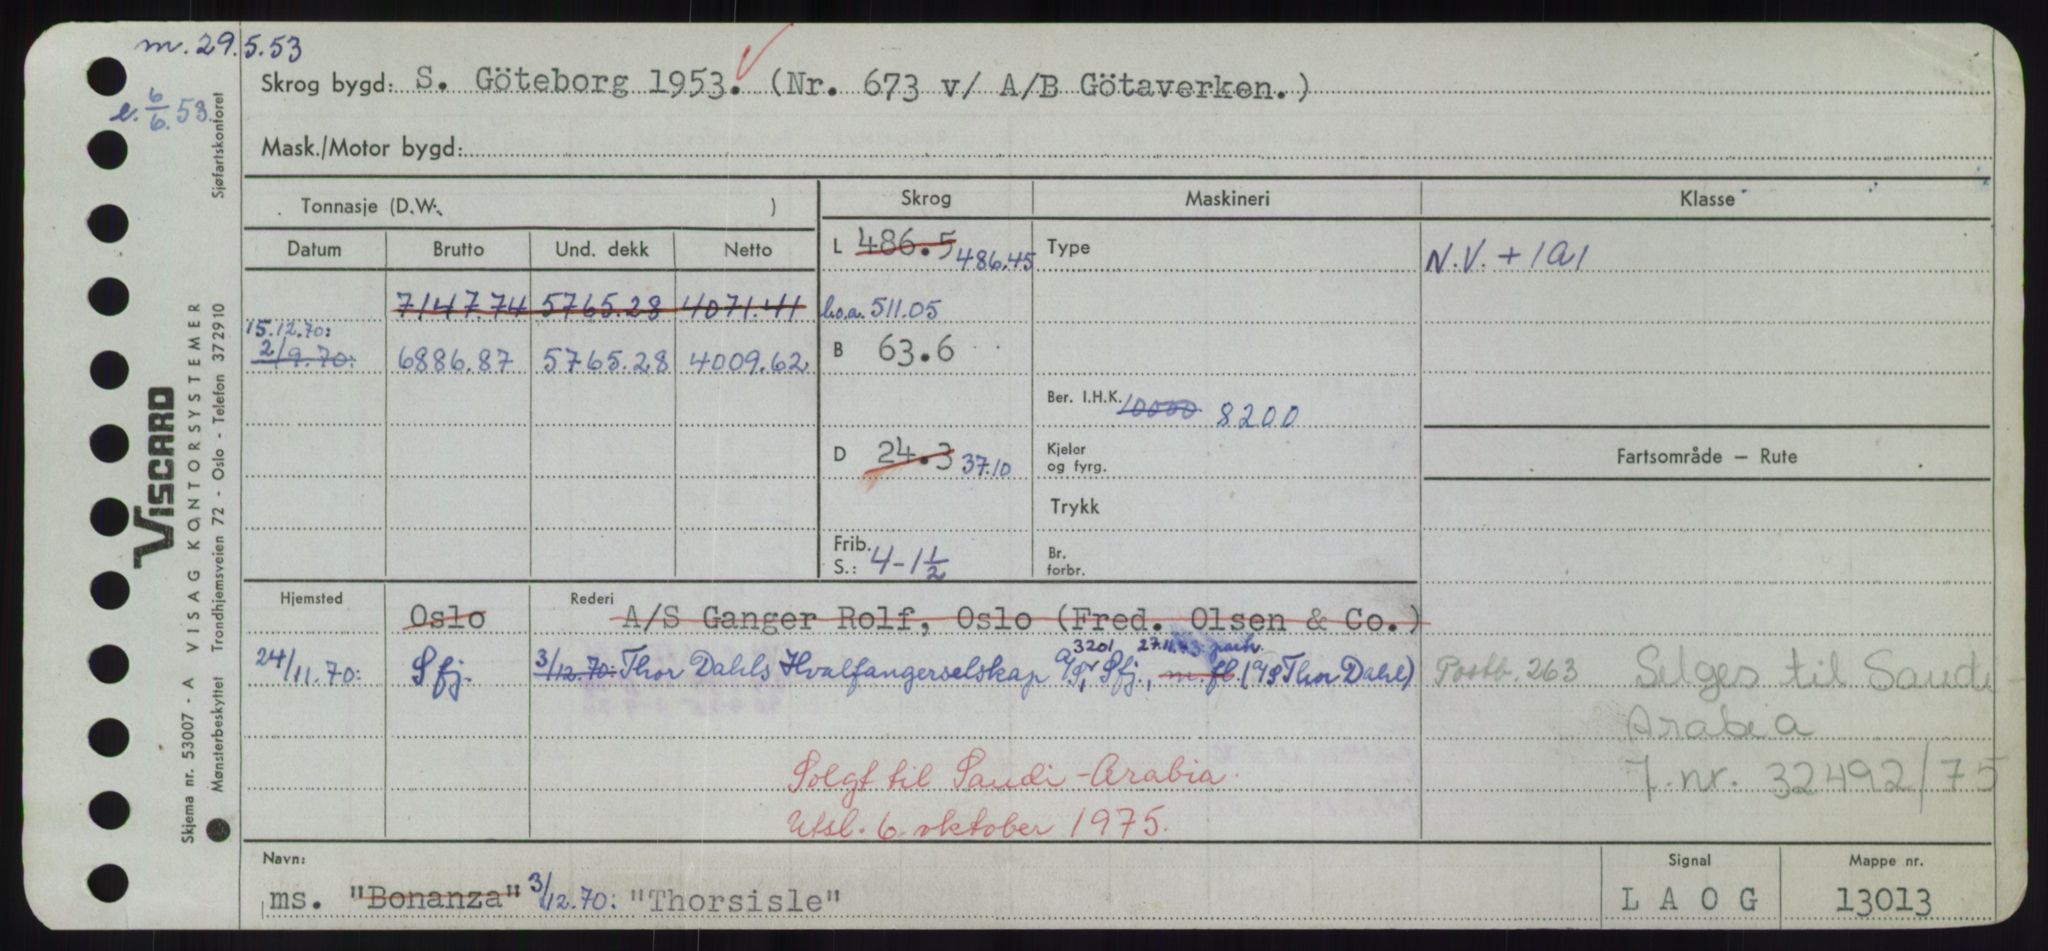 m. 29.5.53
e. 6/6. 53.
Skrog bygd: S. Göteborg 1953. (Nr. 673 v/ A/B Götaverken.)
Mask./Motor bygd:
Tonnasje (D.W. )
Skrog Maskineri Klasse
Datum Brutto Und. dekk Netto
L 486.5 486.45 Type N.V. + 1A1
7147.74 5765.28 4071.41 l.o.a. 511.05
15.12.70:
2/9.70: 6886.87 5765.28 4009.62 B 63.6
Ber. I.H.K. 10000 8200
D 24.3 37.10 Kjeler og fyrg. Fartsområde — Rute
Trykk
Frib. S.: 4-1 1/2 Br. forbr.
Hjemsted Oslo Rederi A/S Ganger Rolf, Oslo (Fred. Olsen & Co.)
3201 27.11.73: partr.
24/11.70: Sfj. 3/12.70: Thor Dahls Hvalfangerselskap A/S, Sfj., m. fl. (A/S Thor Dahl) Postb. 263 Selges til Saudi-
Arabia
Solgt til Saudi-Arabia. J.nr. 32492/75
Utsl. 6. oktober 1975.
Navn: Signal Mappe nr.
ms. "Bonanza" 3/12.70: "Thorsisle" LAOG 13013
VISCARD
VISAG KONTORSYSTEMER
Skjema nr. 53007 - A
Mønsterbeskyttet Trondhjemsveien 72 - Oslo - Telefon 372910 Sjøfartskontoret